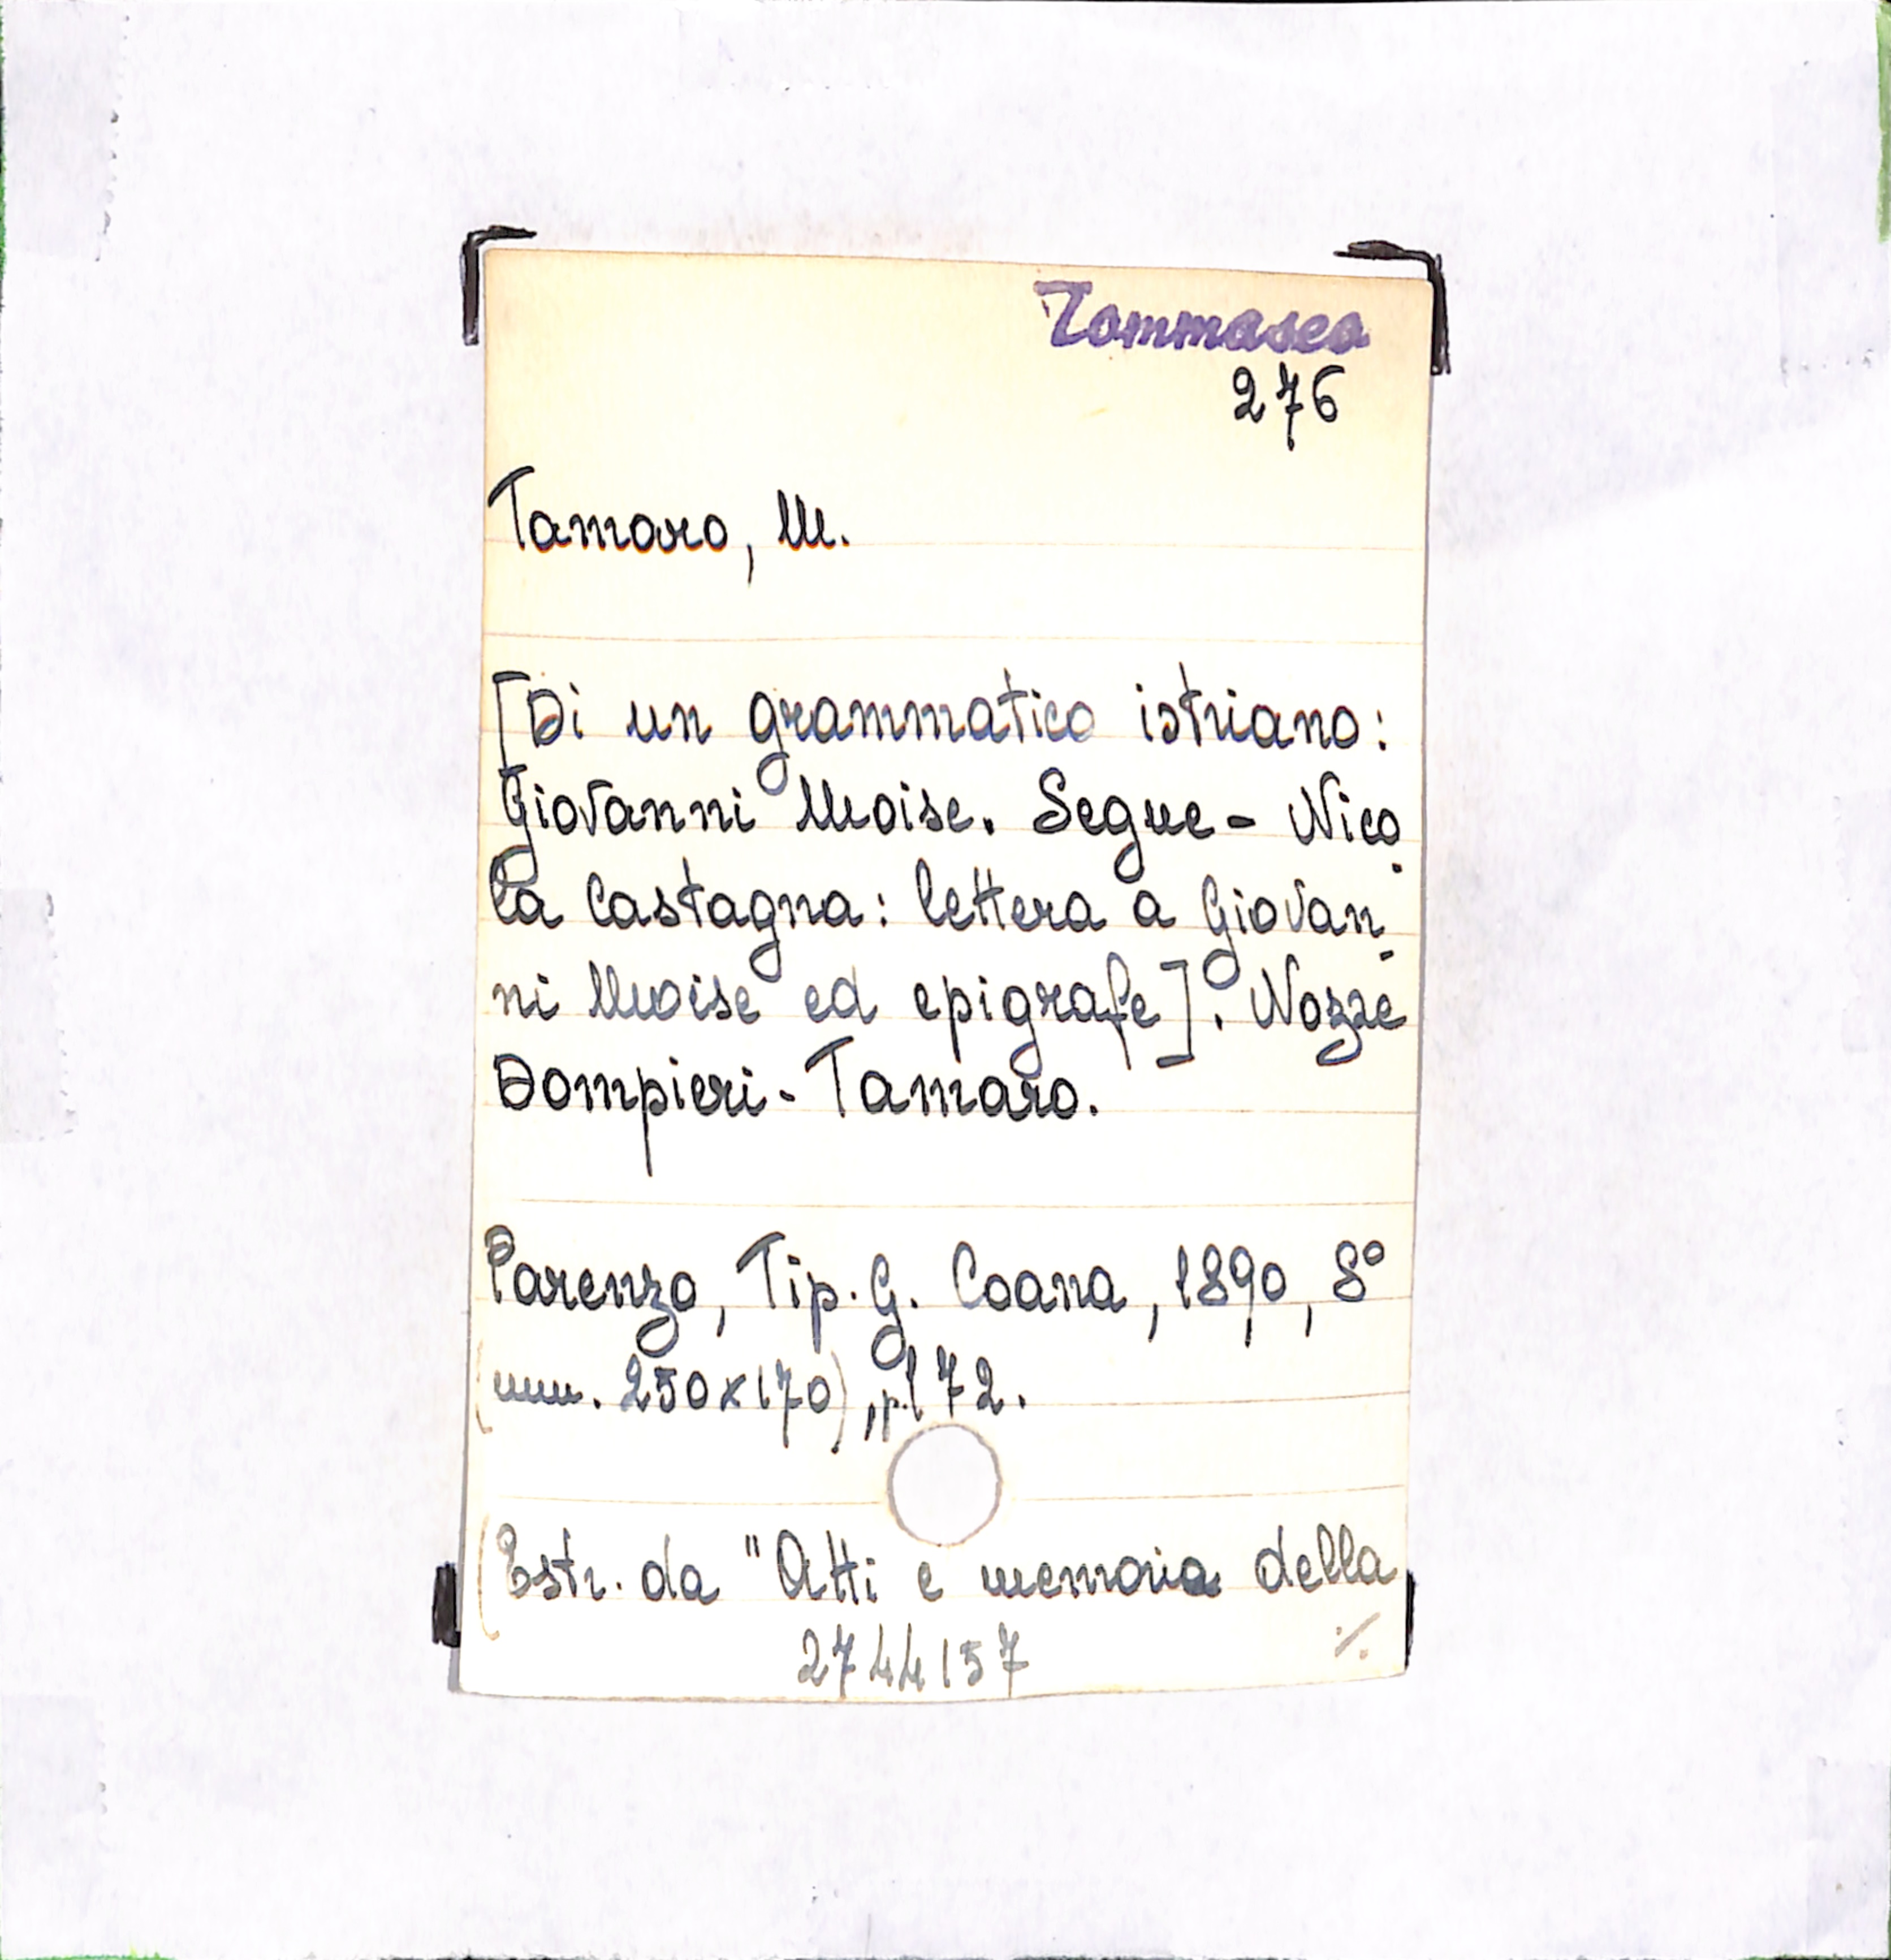 Tommaseo
276
Tamaro, M.
[Di un grammatico istriano:
Giovanni Moise. Segue - Nico-
la Castagna: lettera a Giovan-
ni Moise ed epigrafe]. Nozze
Dompieri - Tamaro.
Parenzo, Tip. G. Coana, 1890, 8°
(mm. 250x170), p. 172.
(Estr. da "Atti e memoria della
2744157 ·/.